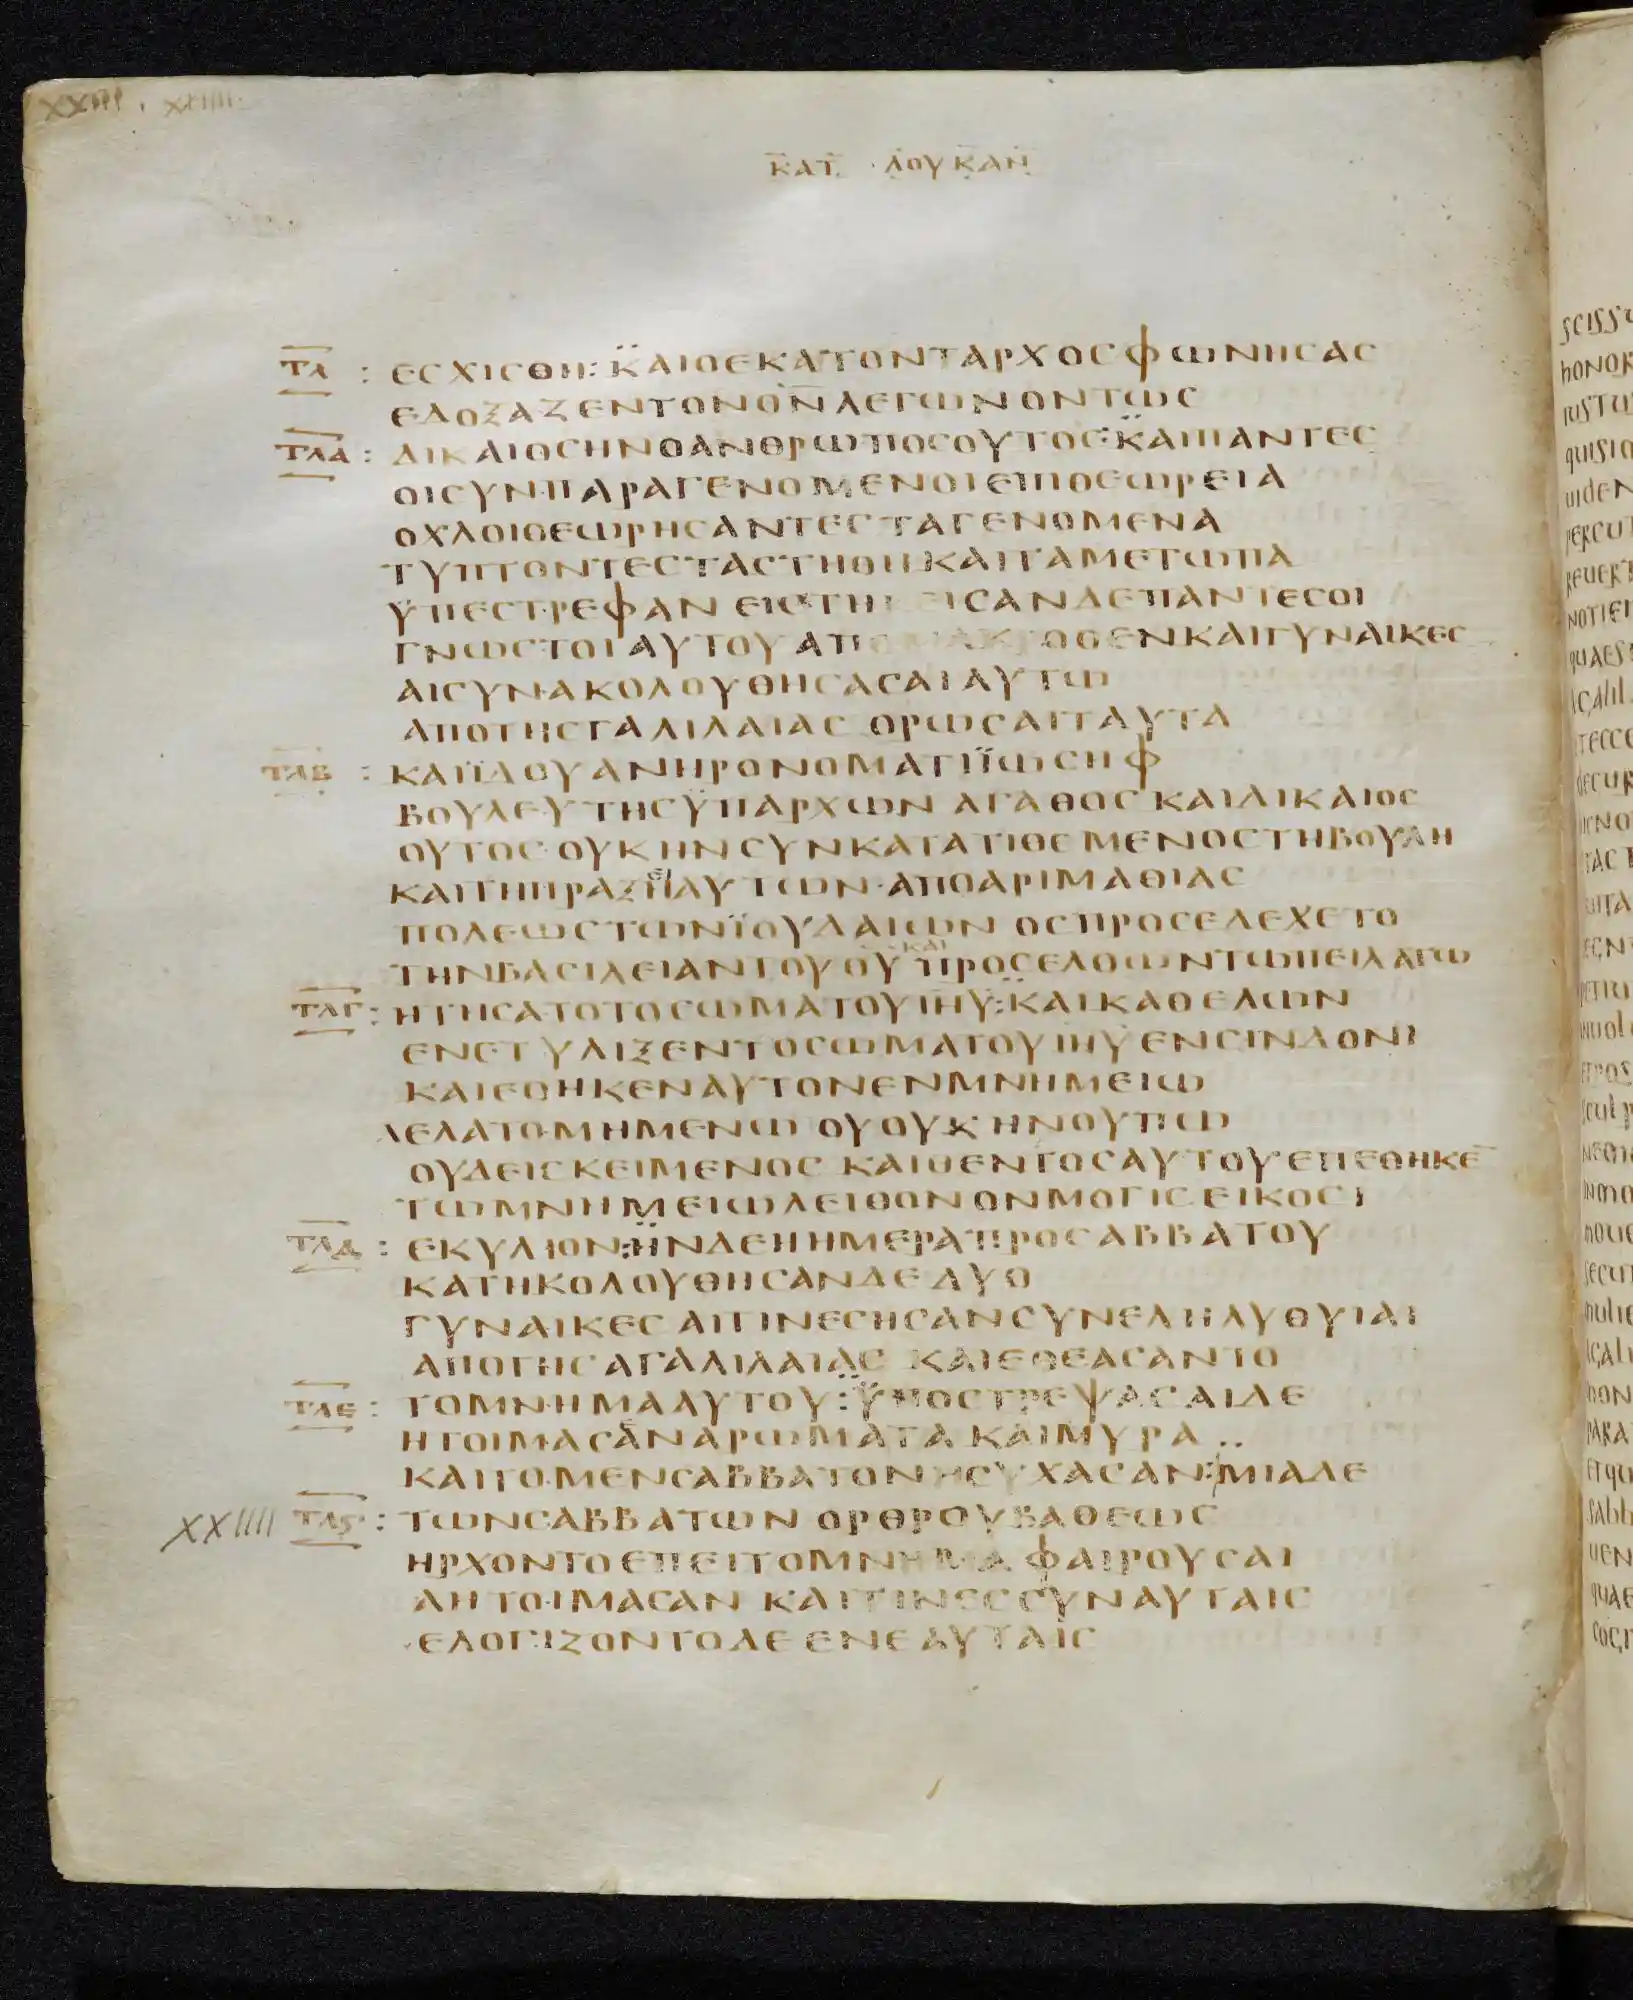 XXIII · XXIIII·
ΚΑΤ · ΛΟΥΚΑΝ
ΤΛ : ΕΣΧΙΣΘΗ: ΚΑΙΟΕΚΑΤΟΝΤΑΡΧΟΣΦΩΝΗΣΑΣ
ΕΔΟΞΑΖΕΝΤΟΝΘΝ ΛΕΓΩΝΟΝΤΩΣ
ΤΛΑ : ΔΙΚΑΙΟΣΗΝΟΑΝΘΡΩΠΟΣΟΥΤΟΣ: ΚΑΙΠΑΝΤΕΣ
ΟΙΣΥΝΠΑΡΑΓΕΝΟΜΕΝΟΙΕΠΙΘΕΩΡΕΙΑ
ΟΧΛΟΙΘΕΩΡΗΣΑΝΤΕΣ ΤΑΓΕΝΟΜΕΝΑ
ΤΥΠΤΟΝΤΕΣΤΑΣΤΗΘΗΚΑΙΤΑΜΕΤΩΠΑ
ΫΠΕΣΤΡΕΦΑΝ ΕΙΣΤΗΚΕΙΣΑΝΔΕΠΑΝΤΕΣΟΙ
ΓΝΩΣΤΟΙΑΥΤΟΥΑΠΟΜΑΚΡΟΘΕΝΚΑΙΓΥΝΑΙΚΕΣ
ΑΙΣΥΝΑΚΟΛΟΥΘΗΣΑΣΑΙΑΥΤΩ
ΑΠΟΤΗΣΓΑΛΙΛΑΙΑΣ ΟΡΩΣΑΙΤΑΥΤΑ
ΤΛΒ : ΚΑΙΪΔΟΥΑΝΗΡΟΝΟΜΑΤΙΪΩΣΗΦ
ΒΟΥΛΕΥΤΗΣΫΠΑΡΧΩΝ ΑΓΑΘΟΣ ΚΑΙΔΙΚΑΙΟΣ
ΟΥΤΟΣ ΟΥΚΗΝΣΥΝΚΑΤΑΤΙΘΕΜΕΝΟΣΤΗΒΟΥΛΗ
ΚΑΙΤΗΠΡΑΞΕΙΑΥΤΩΝ·ΑΠΟΑΡΙΜΑΘΙΑΣ
ΠΟΛΕΩΣΤΩΝΪΟΥΔΑΙΩΝ ΟΣΠΡΟΣΕΔΕΧΕΤΟ
ΤΗΝΒΑΣΙΛΕΙΑΝΤΟΥΘΥ ΚΑΙ ΠΡΟΣΕΛΘΩΝΤΩΠΕΙΛΑΤΩ
ΤΛΓ : ΗΤΗΣΑΤΟΤΟΣΩΜΑΤΟΥΙΗΥ: ΚΑΙΚΑΘΕΛΩΝ
ΕΝΕΤΥΛΙΞΕΝΤΟΣΩΜΑΤΟΥΙΗΥΕΝΣΙΝΔΟΝΙ
ΚΑΙΕΘΗΚΕΝΑΥΤΟΝΕΝΜΝΗΜΕΙΩ
ΛΕΛΑΤΟΜΗΜΕΝΩ ΟΥΟΥΚΗΝΟΥΠΩ
ΟΥΔΕΙΣΚΕΙΜΕΝΟΣ ΚΑΙΘΕΝΤΟΣΑΥΤΟΥΕΠΕΘΗΚΕ
ΤΩΜΝΗΜΕΙΩΛΕΙΘΟΝΟΝΜΟΓΙΣΕΙΚΟΣΙ
ΤΛΔ : ΕΚΥΛΙΟΝ: ΗΝΔΕΗΗΜΕΡΑΠΡΟΣΑΒΒΑΤΟΥ
ΚΑΤΗΚΟΛΟΥΘΗΣΑΝΔΕΔΥΟ
ΓΥΝΑΙΚΕΣΑΙΤΙΝΕΣΗΣΑΝΣΥΝΕΛΗΛΥΘΥΙΑΙ
ΑΠΟΤΗΣΑΓΑΛΙΛΑΙΑΣ ΚΑΙΕΘΕΑΣΑΝΤΟ
ΤΛΕ : ΤΟΜΝΗΜΑΑΥΤΟΥ: ΫΠΟΣΤΡΕΨΑΣΑΙΔΕ
ΗΤΟΙΜΑΣΑΝΑΡΩΜΑΤΑΚΑΙΜΥΡΑ
ΚΑΙΤΟΜΕΝΣΑΒΒΑΤΟΝΗΣΥΧΑΣΑΝ: ΜΙΑΔΕ
XXIIII ΤΛϚ : ΤΩΝΣΑΒΒΑΤΩΝ ΟΡΘΡΟΥΒΑΘΕΩΣ
ΗΡΧΟΝΤΟΕΠΕΙΤΟΜΝΗΜΑ ΦΑΙΡΟΥΣΑΙ
ΑΗΤΟΙΜΑΣΑΝ ΚΑΙΤΙΝΕΣΣΥΝΑΥΤΑΙΣ
ΕΛΟΓΙΖΟΝΤΟΔΕΕΝΕΑΥΤΑΙΣ